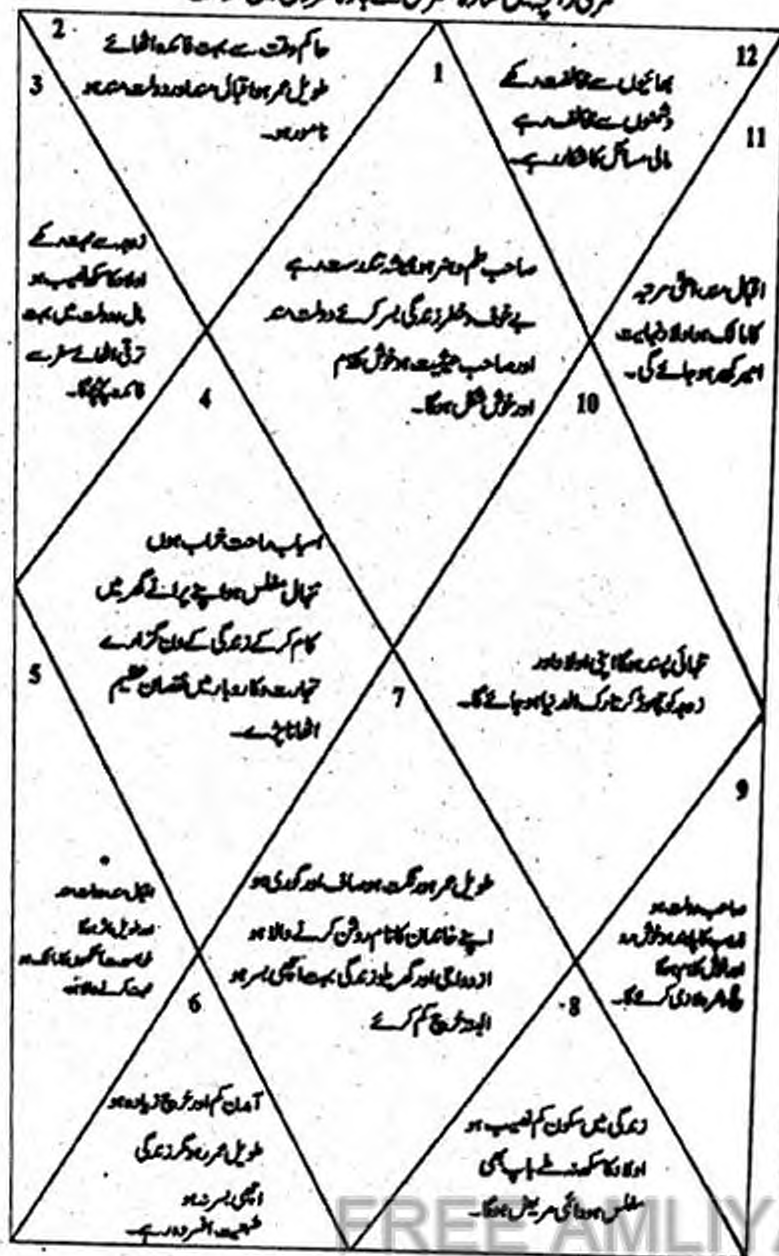 2
حاکم وقت سے بہت فائدہ اٹھائے
طویل عمر ہو اقبال مند اور دولت مند ہو
نامور ہو۔
1
12
بھائیوں سے مخالفت رکھے
دشمنوں سے خائف رہے
مالی مسائل کا شکار رہے۔
3
زوجہ سے محبت رکھے
اولاد کا سکھ نصیب ہو
مال و دولت میں بہت
ترقی اٹھائے سفر سے
فائدہ پہنچے گا۔
صاحب علم و ہنر ہو ہمیشہ تندرست رہے
بے خوف و خطر زندگی بسر کرے دولت مند
اور صاحب حیثیت ہو خوش کلام
اور خوش شکل ہوگا۔
11
اقبال مند اعلیٰ مرتبہ
کا مالک ہو اولاد نہایت
امیر کبیر ہو جائے گی۔
4
اسباب راحت خراب ہوں
ننہال مفلس ہو اپنے پرانے گھر میں
کام کر کے زندگی کے دن گزارے
تجارت و کاروبار میں نقصان عظیم
اٹھانا پڑے۔
10
تنہائی پسند ہوگا اپنی اولاد اور
زوجہ کو چھوڑ کر تارک الدنیا ہو جائے گا۔
5
اقبال مند دولت مند
اور طویل ہوگا
خوبصورت آنکھوں کا مالک ہو
محبت کرنے والا ہو
7
طویل عمر ہو رنگت ہو صاف اور گوری ہو
اپنے خاندان کا نام روشن کرنے والا ہو
ازدواجی اور گھریلو زندگی بہت اچھی بسر ہو
البتہ خرچ کم کرے
9
صاحب دولت ہو
مذہب کا پابند ہو خوش رو
اور خوش کلام ہوگا
کرے گا۔
6
آمدن کم اور خرچ زیادہ ہو
طویل عمر ہو مگر زندگی
اچھی بسر نہ ہو
طبیعت افسردہ رہے۔
8
زندگی میں سکون کم نصیب ہو
اولاد کا سکھ نہ ملے باپ بھی
مفلس ہو دائمی مریض ہوگا۔
FREE AMLIY